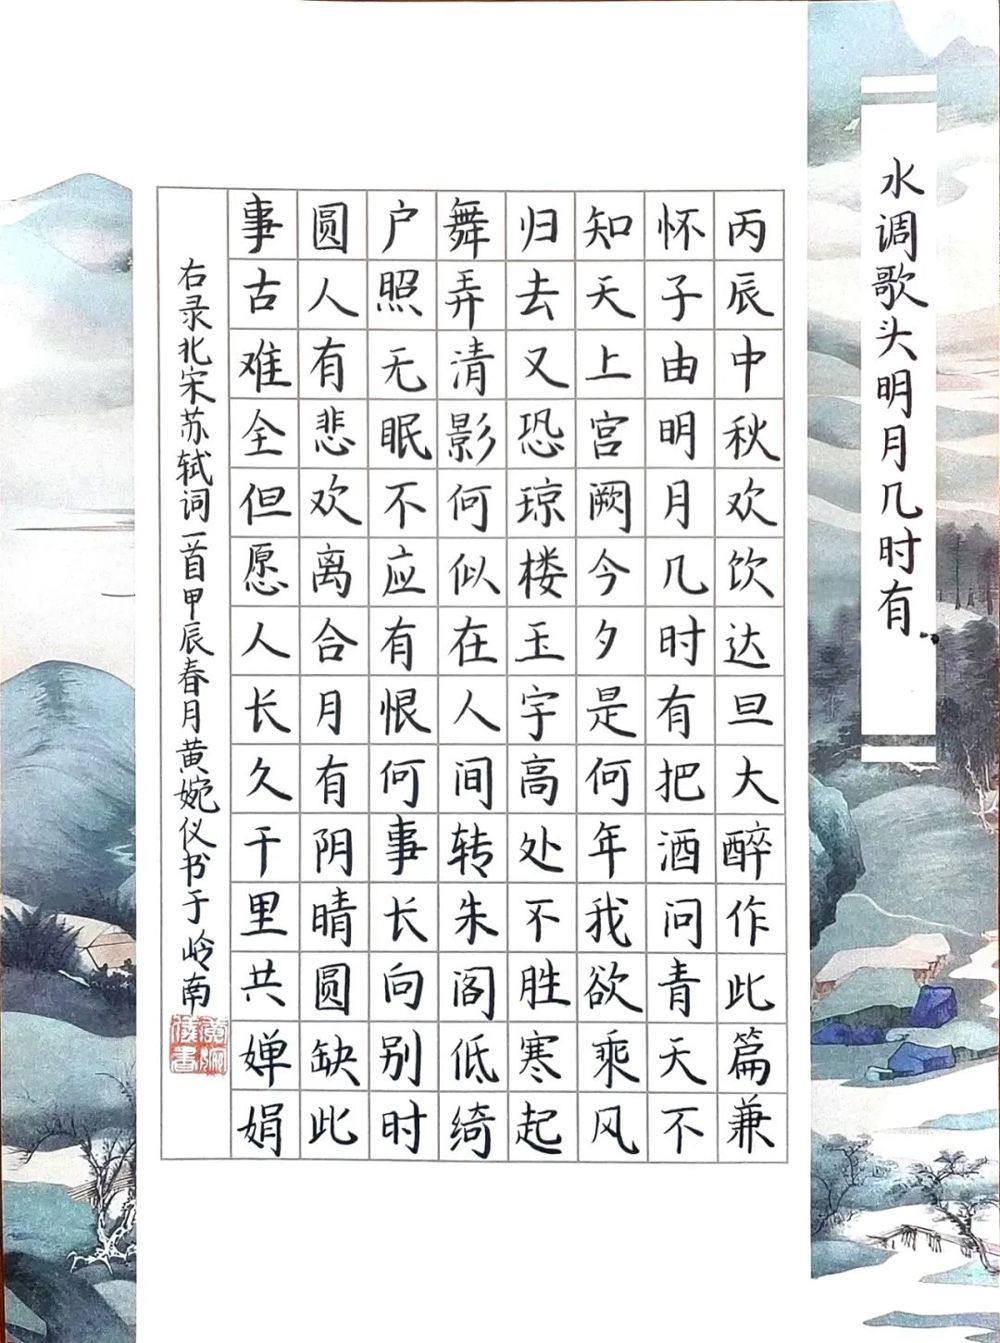 水调歌头明月几时有
丙辰中秋欢饮达旦大醉作此篇兼
怀子由明月几时有把酒问青天不
知天上宫阙今夕是何年我欲乘风
归去又恐琼楼玉宇高处不胜寒起
舞弄清影何似在人间转朱阁低绮
户照无眠不应有恨何事长向别时
圆人有悲欢离合月有阴晴圆缺此
事古难全但愿人长久千里共婵娟
右录北宋苏轼词一首甲辰春月黄婉仪书于岭南
黄婉
仪书